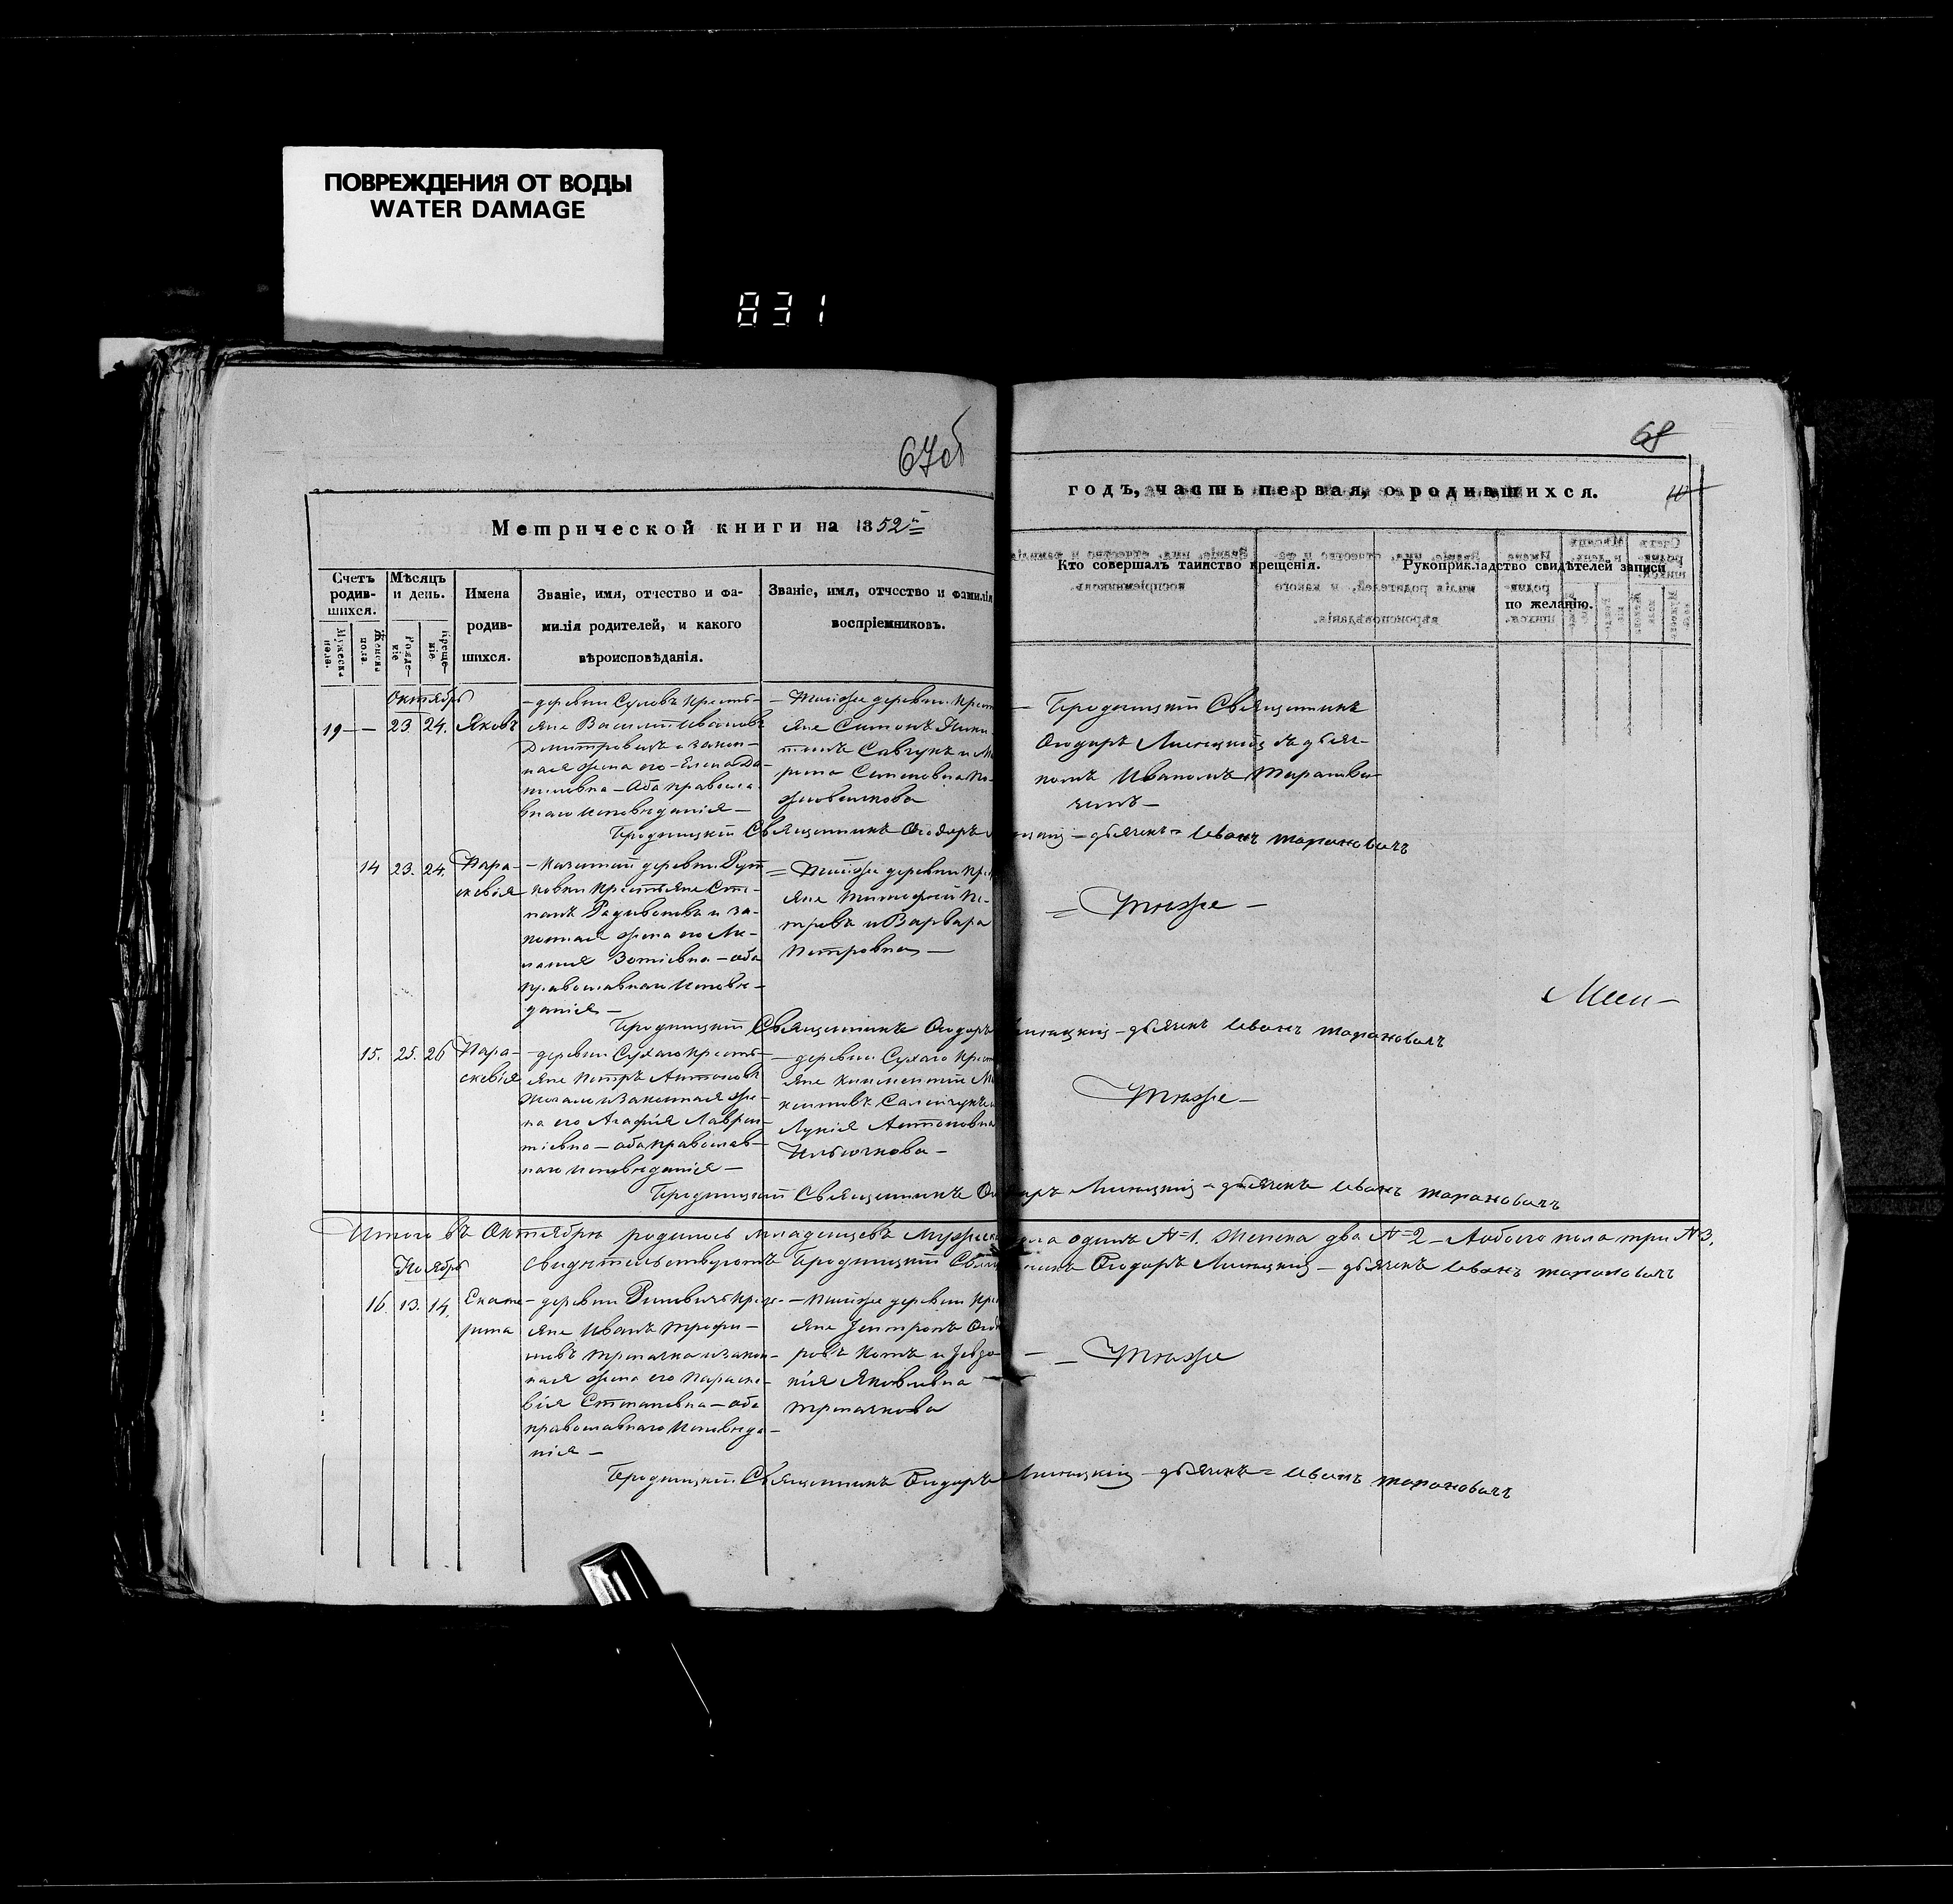 ПОВРЕЖДЕНИЯ ОТ ВОДЫ
WATER DAMAGE
831
67об
68
Метрической книги на 1852й
годъ, часть первая, о родившихся.
Счетъ родив-шихся.
Мужеска пола.
Женска пола.
Мѣсяцъ и день.
Рожде-ніе
Креще-ніе.
Имена родив-шихся.
Званіе, имя, отчество и фа-
милія родителей, и какого
вѣроисповѣданія.
Званіе, имя, отчество и фамилія
воспріемниковъ.
Кто совершалъ таинство крещенія.
Рукоприкладство свидѣтелей записи
по желанію.
Октябрь
19 — — 23. 24. Яковъ
яне Василій Ивановъ
Дмитровецъ и закон-
ная жена его Елена Да-
ниловна — оба правосла-
внаго исповѣданія —
— Тойже деревни Крест
яне Симонъ Ники-
тинъ Савчукъ и М
рина Семеновна
— Городницкій Священникъ
Ѳеодоръ Линицкій съ дьяч-
комъ Иваномъ Таранови-
чемъ —
Городницкій Священникъ Ѳеодоръ — дьячекъ = Иванъ Тарановичъ
14 23. 24. Пара-
скевія
— Казенной деревни
крестьяне Сте-
панъ и за-
конная жена его Ме-
ланія Зотіевна — оба
православнаго исповѣ-
данія —
= Тойже деревни Кре
яне Тимофей Пе-
тровъ и Варвара
Петровна —
= Тѣже —
Городницкій Священникъ Ѳеодоръ Линицкій — дьячекъ Иванъ Тарановичъ
15. 25. 26 Пара-
скевія
— деревни Сухаго кресть-
яне Петръ Антоновъ
и законная же-
на его Агафія Лаврен-
тіевна — оба православ-
наго исповѣданія —
— деревни Сухаго Крест
яне Климентій
Лукія Антоновна
Ильючкова —
Тѣже —
Городницкій Священникъ Ѳеодоръ Линицкій — дьячекъ Иванъ Тарановичъ
Итого въ Октябрѣ родилось младенцевъ Мужеска пола одинъ №1. Женска два №2 — Обоего пола три №3.
Ноябрь
Свидѣтельствуютъ Городницкій Священникъ Ѳеодоръ Линицкій — дьячекъ Иванъ Тарановичъ
16. 13. 14. Екате-
рина
— деревни
яне Иванъ Трофи-
мовъ и закон-
ная жена его Параске-
вія Степановна — оба
православнаго исповѣда-
нія —
— Тойже деревни Кре
яне Ѳеодо-
ровъ Котъ и Евдо-
кія Яковлевна
— Тѣже
Городницкій Священникъ Ѳеодоръ Линицкій — дьячекъ = Иванъ Тарановичъ